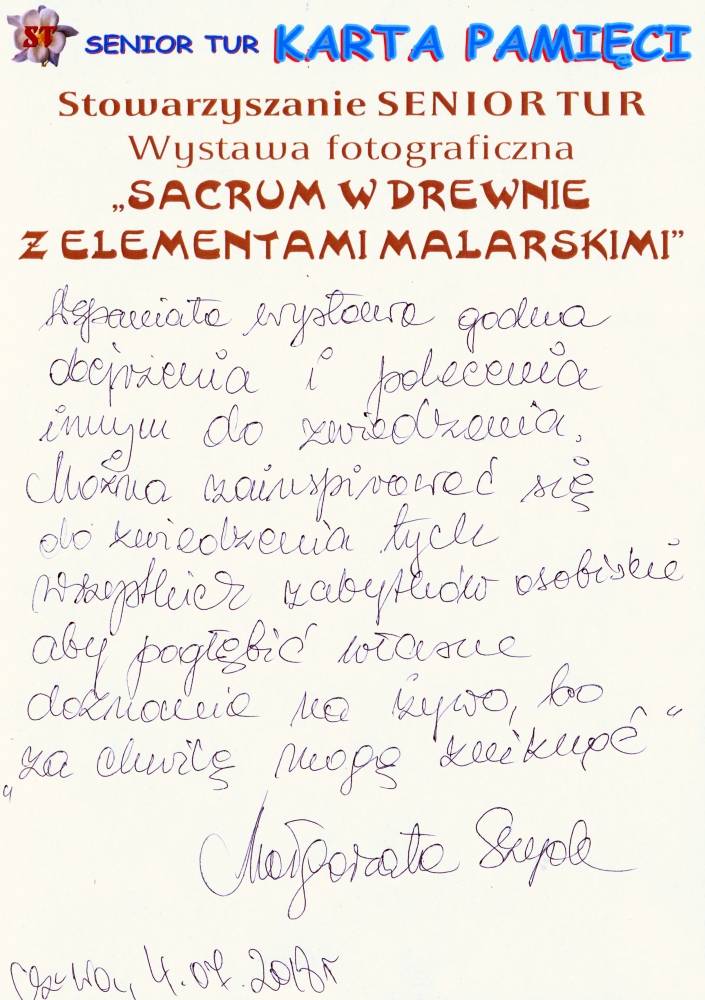 ST SENIOR TUR KARTA PAMIĘCI
Stowarzyszanie SENIOR TUR
Wystawa fotograficzna
„SACRUM W DREWNIE
Z ELEMENTAMI MALARSKIMI”
Wspaniała wystawa godna
obejrzenia i polecenia
innym do zwiedzania.
Można zainspirować się
do zwiedzenia tych
wszystkich zabytków osobiście
aby pogłębić własne
doznania na żywo, bo
„za chwilę mogą zniknąć“
Małgorzata
4.07.2018r